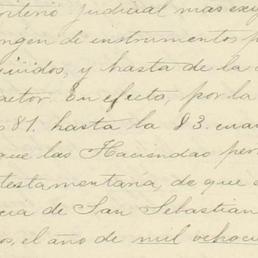 criterio judicial mas exi
ngen de instrumentos p
guidos, y hasta de la
actor. En efecto, por la
s 81. hasta la 83. cua
que las Haciendas per
testamentaria, de que
cia de San Sebastian
os, el año de mil ochoci